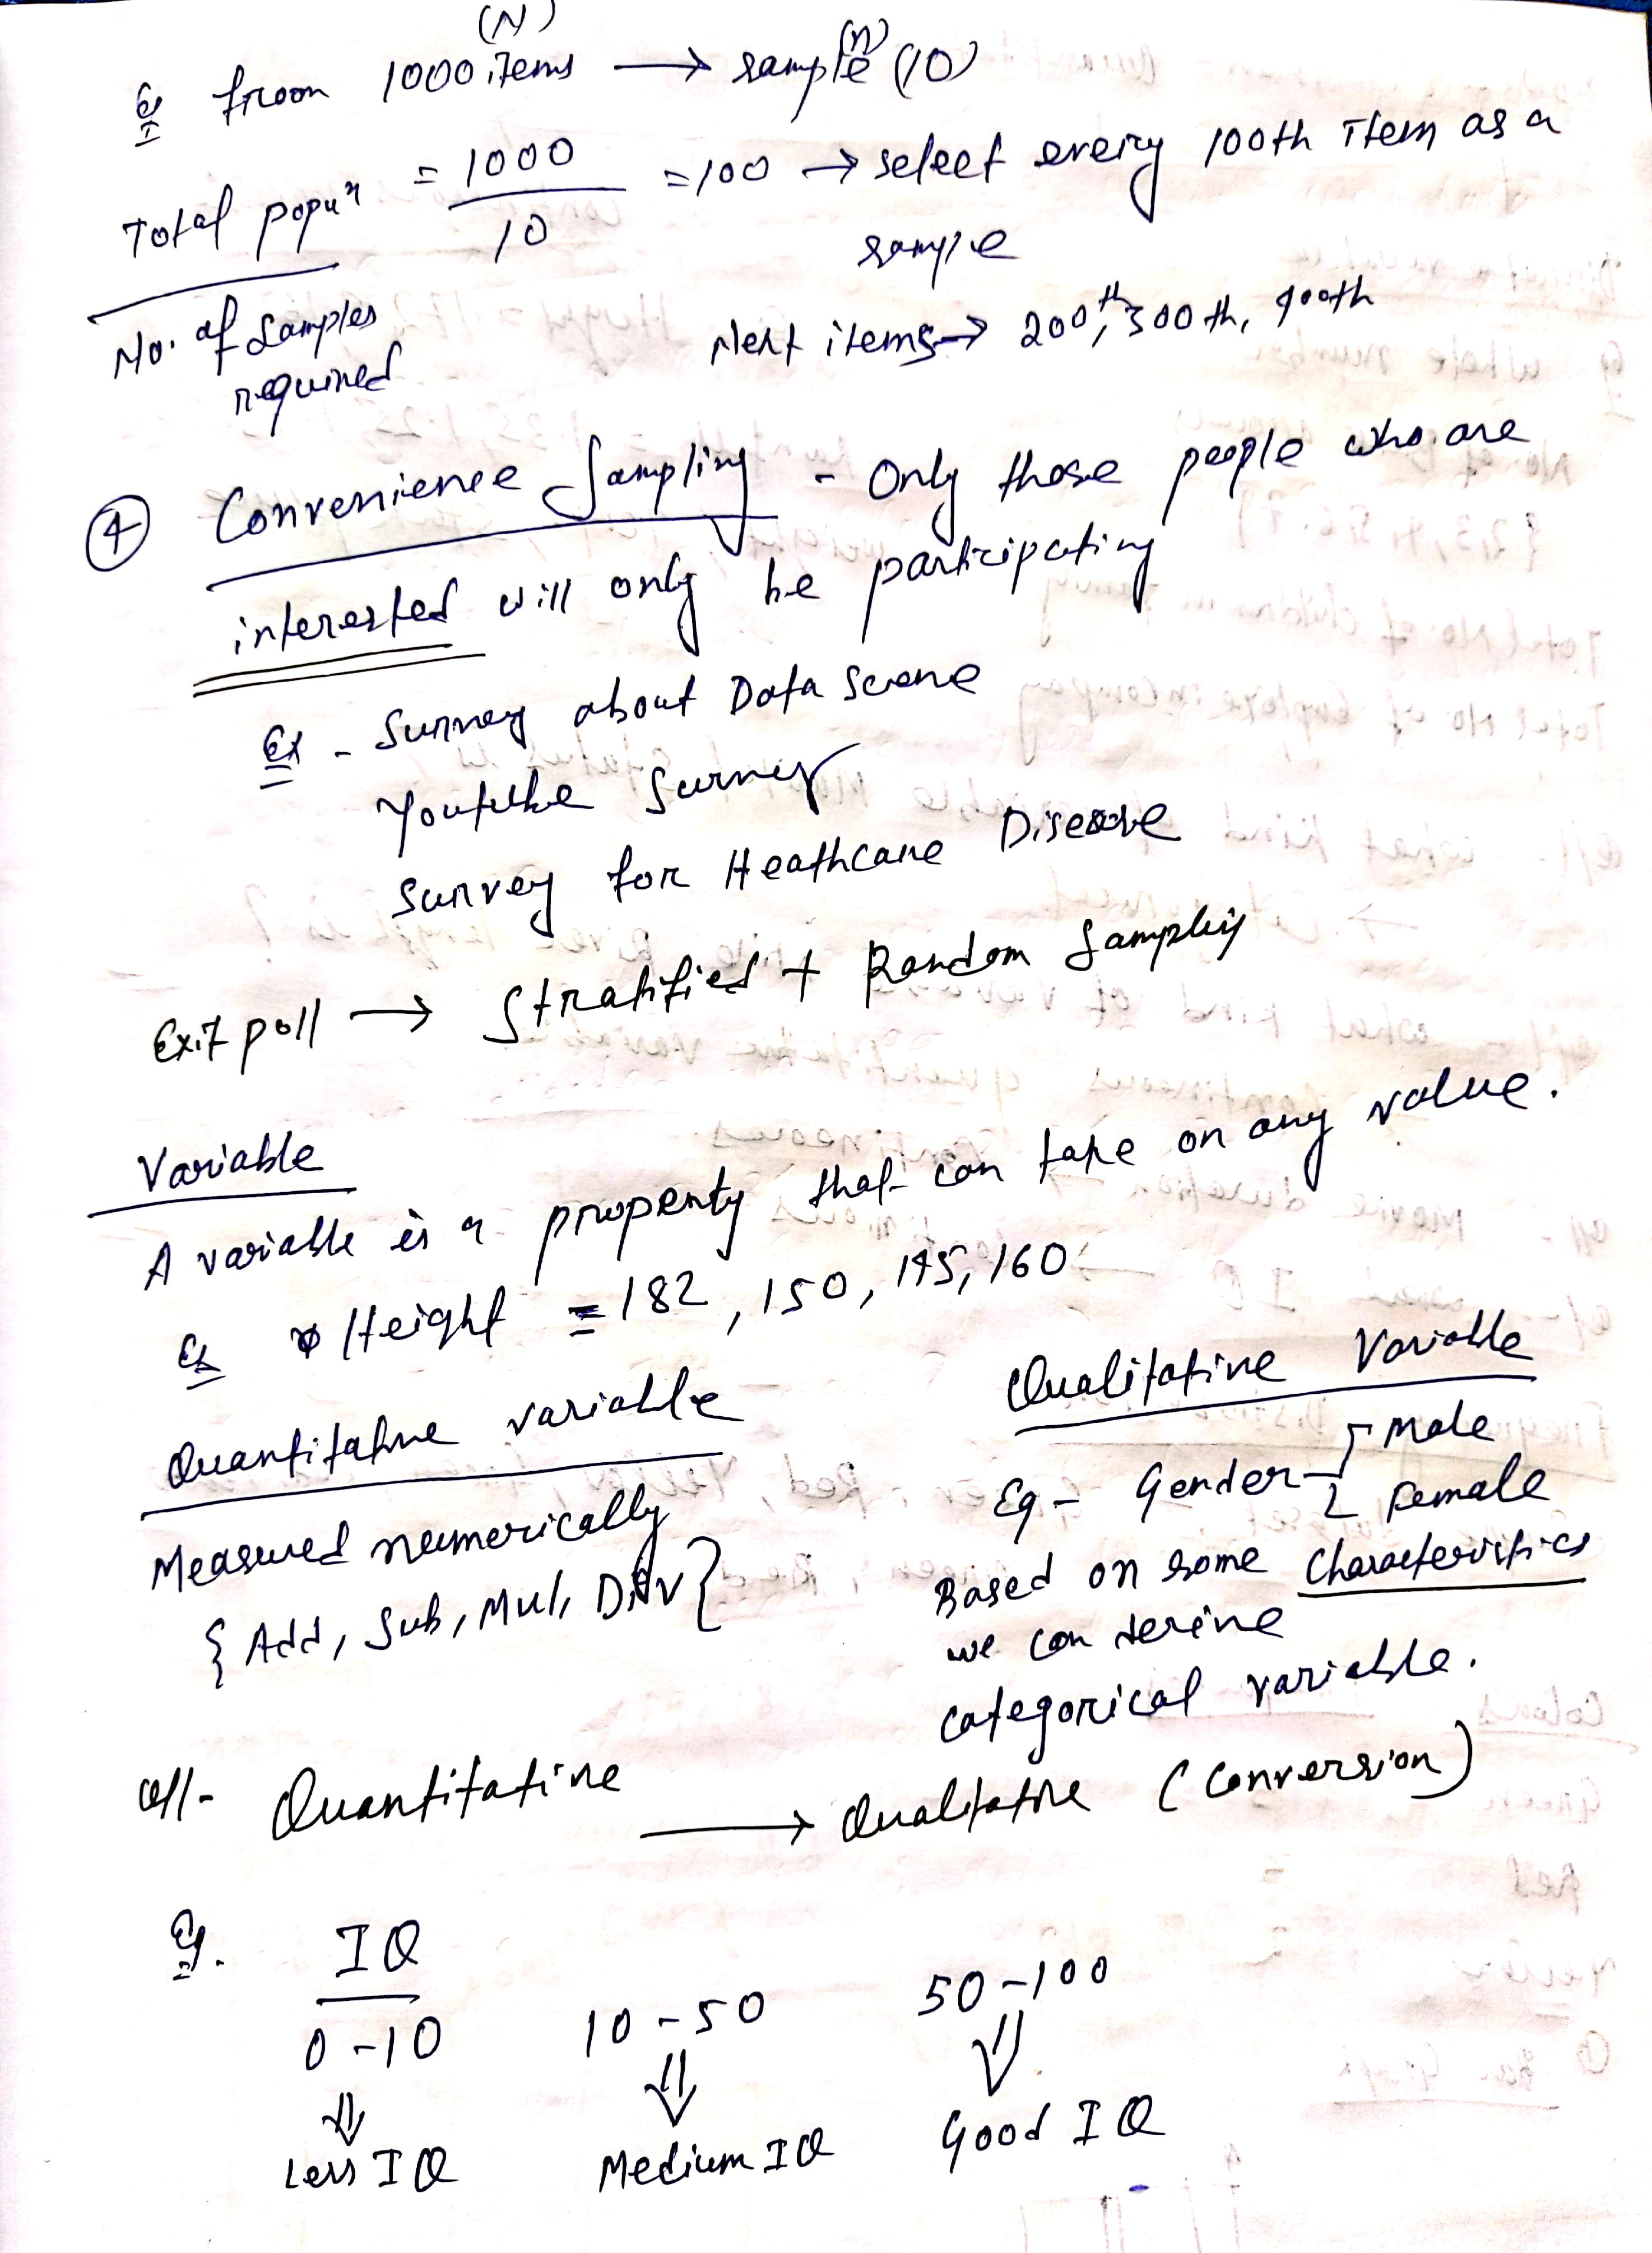 (N) (n)
Eg from 1000 items → sample (10)
Total popuⁿ = 1000 = 100 → select every 100th Item as a
10 sample
No. of Samples required
Next items → 200th, 300th, 400th
④ Convenience Sampling - Only those people who are
interested will only be participating
Ex - Survey about Data Sciene
Youtube Survey
Survey for Heathcare Disease
Exit poll → Stratified + Random Sampling
Variable
A variable is a property that can take on any value.
Eg Height = 182, 150, 145, 160
Quantitative variable
Measured numerically
{ Add, Sub, Mul, Div }
Qualitative Variable
Eg - Gender - Male
Female
Based on some Characteristics
we can derive
categorical variable.
Quantitative → Qualitative (Conversion)
Eg. IQ
0 - 10 10 - 50 50 - 100
⇓ ⇓ ⇓
Less IQ Medium IQ Good IQ